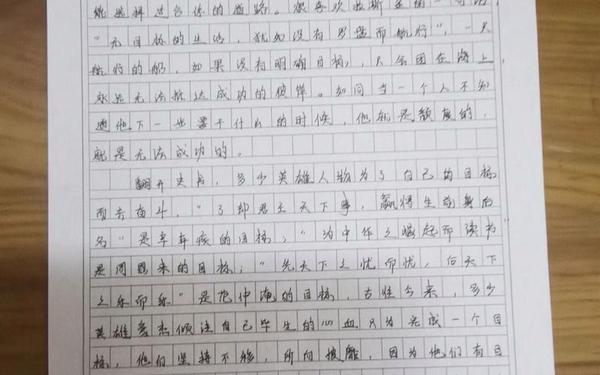 能选择适合你的道路。很喜欢
“无目标的生活，犹如没有罗盘而航行”，一只
航行的船，如果没有明确目标，只会困在海上，
永远无法抵达成功的彼岸。如同当一个人不知
道他下一步要干什么的时候，他就是颓废的，
就是无法成功的。
翻开史书，多少英雄人物为了自己的目标
而去奋斗，“了却君王天下事，赢得生前身后
名”是辛弃疾的目标，“为中华之崛起而读书”
是周恩来的目标，“先天下之忧而忧，后天下
之乐而乐”是范仲淹的目标，古往今来，多少
英雄豪杰倾注自己毕生的心血只为完成一个目
标，他们坚持不移，所向披靡，因为他们有目